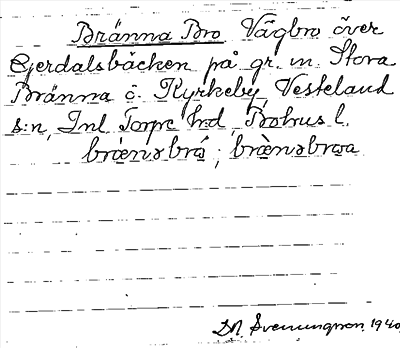 Bränna Bro Vägbro över
Gerdalsbäcken på gr. m. Stora
Bränna ö. Kyrkeby, Vesteland
s:n, Inl Torpe hrd, Bohus l.
brænəbrå ; brænəbroa
D.A. Svenungson 1940,